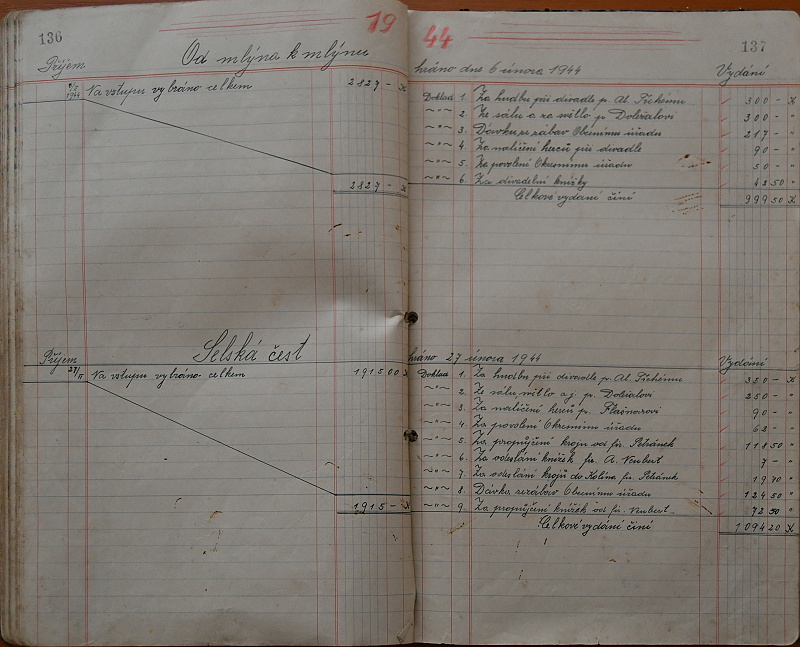 136
19
44
137
Příjem
Od mlýna k mlýnu
hráno dne 6 února 1944
Vydání
6/2 1944 Na vstupu vybráno celkem 2827 - K
2827 - K
Doklad 1. Za hudbu při divadle p. Al. 300 - K
-"- 2. Ze sálu a za světlo p. Doležalovi 300 - "
-"- 3. Dávka ze zábav Obecnímu úřadu 217 - "
-"- 4. Za nalíčení herců při divadle 90 - "
-"- 5. Za povolení Okresnímu úřadu 50 - "
-"- 6. Za divadelní knížky 42 50 "
Celkové vydání činí 999 50 K
Příjem
Selská čest
hráno 27 února 1944
Vydání
27/II Na vstupu vybráno celkem 1915 00 K
1915 - K
Doklad 1. Za hudbu při divadle p. Al. 350 - K
-"- 2. Ze sálu, světlo a j. p. Doležalovi 250 - "
-"- 3. Za nalíčení herců p. 90 - "
-"- 4. Za povolení Okresnímu úřadu 62 - "
-"- 5. Za propůjčení krojů od fy. Petránek 118 50 "
-"- 6. Za odeslání knížek fy. A. Neubert 7 - "
-"- 7. Za odeslání krojů do Kolína fy. Petránek 19 70 "
-"- 8. Dávka ze zábav Obecnímu úřadu 124 50 "
-"- 9. Za propůjčení knížek od fy. Neubert 72 50 "
Celkové vydání činí 1094 20 K